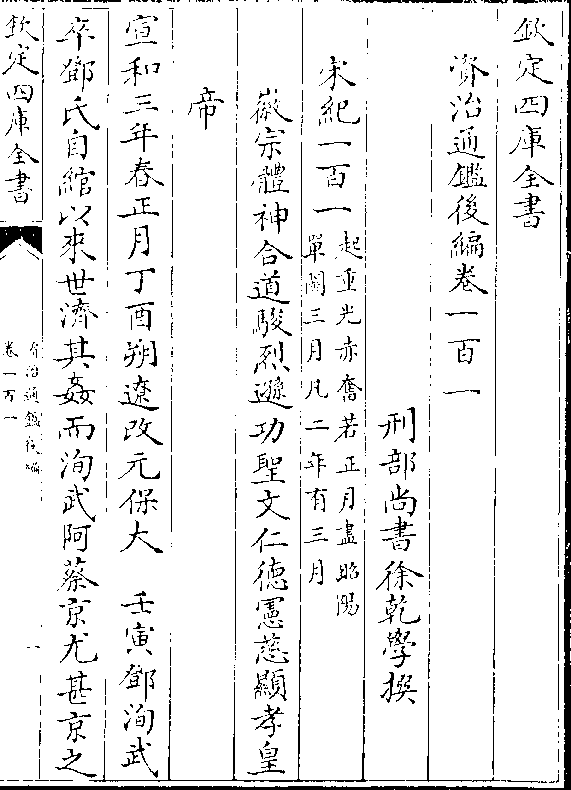 欽定四庫全書
資治通鑑後編卷一百一
刑部尚書徐乾學撰
宋紀一百一起重光赤奮若正月盡昭陽
單閼三月凡二年有三月
徽宗體神合道駿烈遜功聖文仁德憲慈顯孝皇
帝
宣和三年春正月丁酉朔遼改元保大　壬寅鄧洵武
卒鄧氏自綰以來世濟其姦而洵武阿蔡京尤甚京之
欽定四庫全書
資治通鑑後編
卷一百一
一